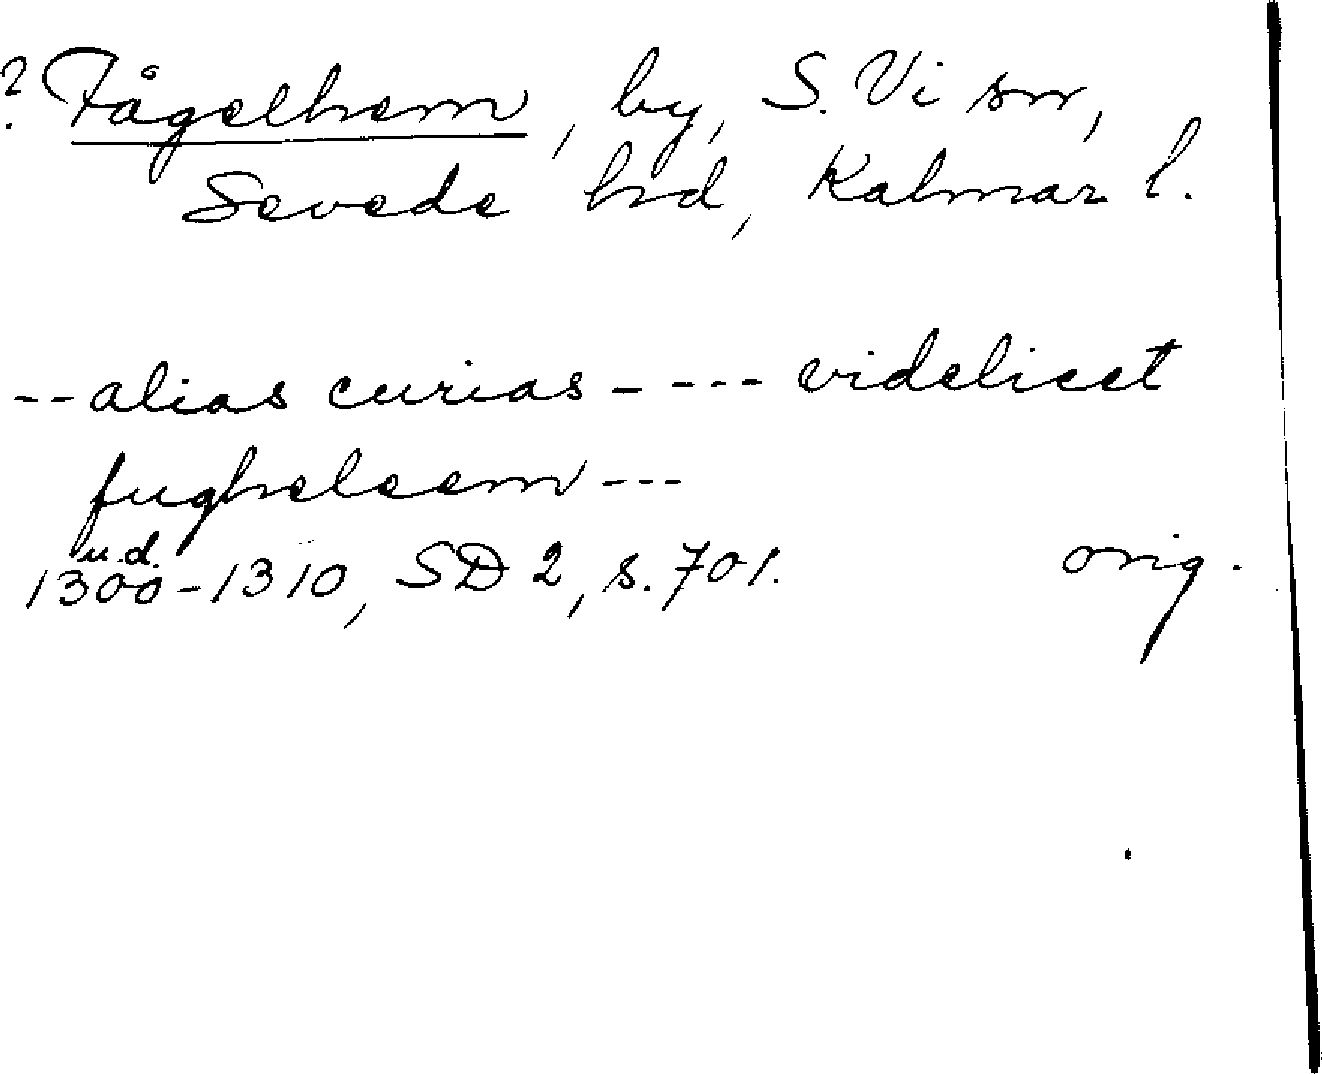 ? Fågelhem, by, S. Vi sn,
Sevede hd, Kalmar l.
-- alias curias - --- videlicet
fugheleem ---
u.d.
1300-1310, SD 2, s. 701. orig.